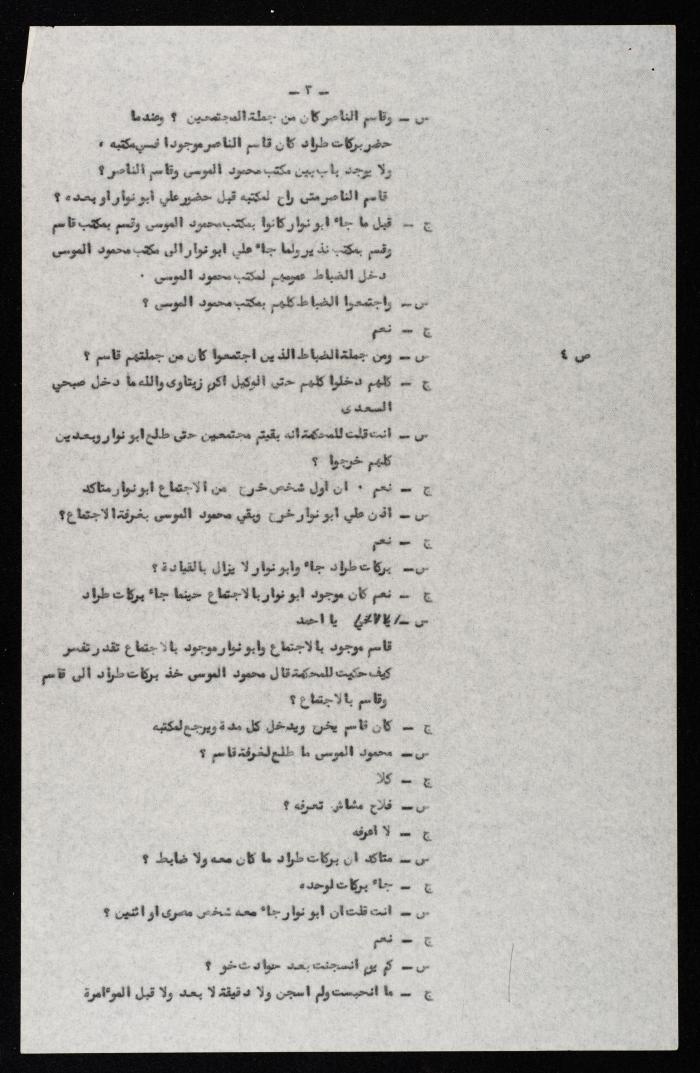 - ٣ -
س - وقاسم الناصر كان من جملة المجتمعين ؟ وعندما
حضر بركات طراد كان قاسم الناصر موجودا في مكتبه ،
ولا يوجد باب بين مكتب محمود الموسى وقاسم الناصر ؟
قاسم الناصر متى راح لمكتبه قبل حضور علي ابو نوار او بعده ؟
ج - قبل ما جاء ابو نوار كانوا بمكتب محمود الموسى وقسم بمكتب قاسم
وقسم بمكتب نذير ولما جاء علي ابو نوار الى مكتب محمود الموسى
دخل الضباط عمومهم لمكتب محمود الموسى .
س - واجتمعوا الضباط كلهم بمكتب محمود الموسى ؟
ج - نعم
ص ٤
س - ومن جملة الضباط الذين اجتمعوا كان من جملتهم قاسم ؟
ج - كلهم دخلوا كلهم حتى الوكيل اكرم زيتاوى والله ما دخل صبحي
السعدى
س - انت قلت للمحكمة انه بقيتم مجتمعين حتى طلع ابو نوار وبعدين
كلهم خرجوا ؟
ج - نعم . ان اول شخص خرج من الاجتماع ابو نوار متاكد
س - اذن علي ابو نوار خرج وبقي محمود الموسى بغرفة الاجتماع ؟
ج - نعم
س - بركات طراد جاء وابو نوار لا يزال بالقيادة ؟
ج - نعم كان موجود ابو نوار بالاجتماع حينما جاء بركات طراد
س - يا احمد
قاسم موجود بالاجتماع وابو نوار موجود بالاجتماع تقدر تفسر
كيف حكيت للمحكمة قال محمود الموسى خذ بركات طراد الى قاسم
وقاسم بالاجتماع ؟
ج - كان قاسم يخرج ويدخل كل مدة ويرجع لمكتبه
س - محمود الموسى ما طلع لغرفة قاسم ؟
ج - كلا
س - فلاح مشاش تعرفه ؟
ج - لا اعرفه
س - متاكد ان بركات طراد ما كان معه ولا ضابط ؟
ج - جاء بركات لوحده
س - انت قلت ان ابو نوار جاء معه شخص مصرى او اثنين ؟
ج - نعم
س - كم يوم انسجنت بعد حوادث خو ؟
ج - ما انحبست ولم اسجن ولا دقيقة لا بعد ولا قبل الموءامرة